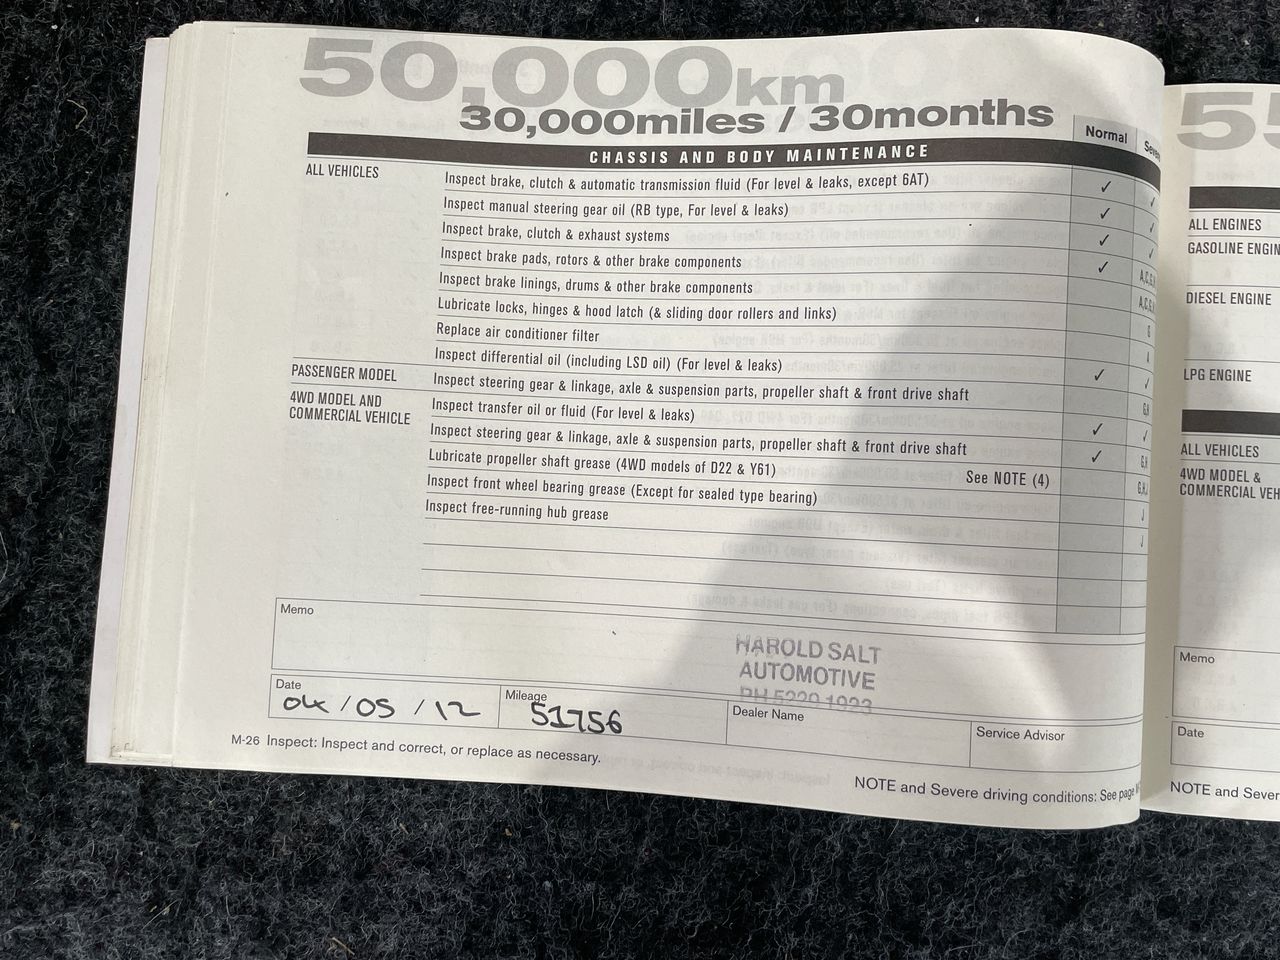 50,000km
30,000miles / 30months
Normal
CHASSIS AND BODY MAINTENANCE
ALL VEHICLES
Inspect brake, clutch & automatic transmission fluid (For level & leaks, except 6AT) ✓ ✓
Inspect manual steering gear oil (RB type, For level & leaks) ✓ ✓
Inspect brake, clutch & exhaust systems ✓ ✓
Inspect brake pads, rotors & other brake components ✓
Inspect brake linings, drums & other brake components
Lubricate locks, hinges & hood latch (& sliding door rollers and links) G
Replace air conditioner filter A
Inspect differential oil (including LSD oil) (For level & leaks) ✓ ✓
PASSENGER MODEL
Inspect steering gear & linkage, axle & suspension parts, propeller shaft & front drive shaft
4WD MODEL AND
COMMERCIAL VEHICLE
Inspect transfer oil or fluid (For level & leaks) ✓ ✓
Inspect steering gear & linkage, axle & suspension parts, propeller shaft & front drive shaft ✓
Lubricate propeller shaft grease (4WD models of D22 & Y61) See NOTE (4)
Inspect front wheel bearing grease (Except for sealed type bearing) J
Inspect free-running hub grease J
Memo
HAROLD SALT
AUTOMOTIVE
PH 5229 1923
Date
04/05/12
Mileage
51756
Dealer Name
Service Advisor
M-26 Inspect: Inspect and correct, or replace as necessary.
NOTE and Severe driving conditions: See page
55
ALL ENGINES
GASOLINE ENGIN
DIESEL ENGINE
LPG ENGINE
ALL VEHICLES
4WD MODEL &
COMMERCIAL VEH
Memo
Date
NOTE and Sever